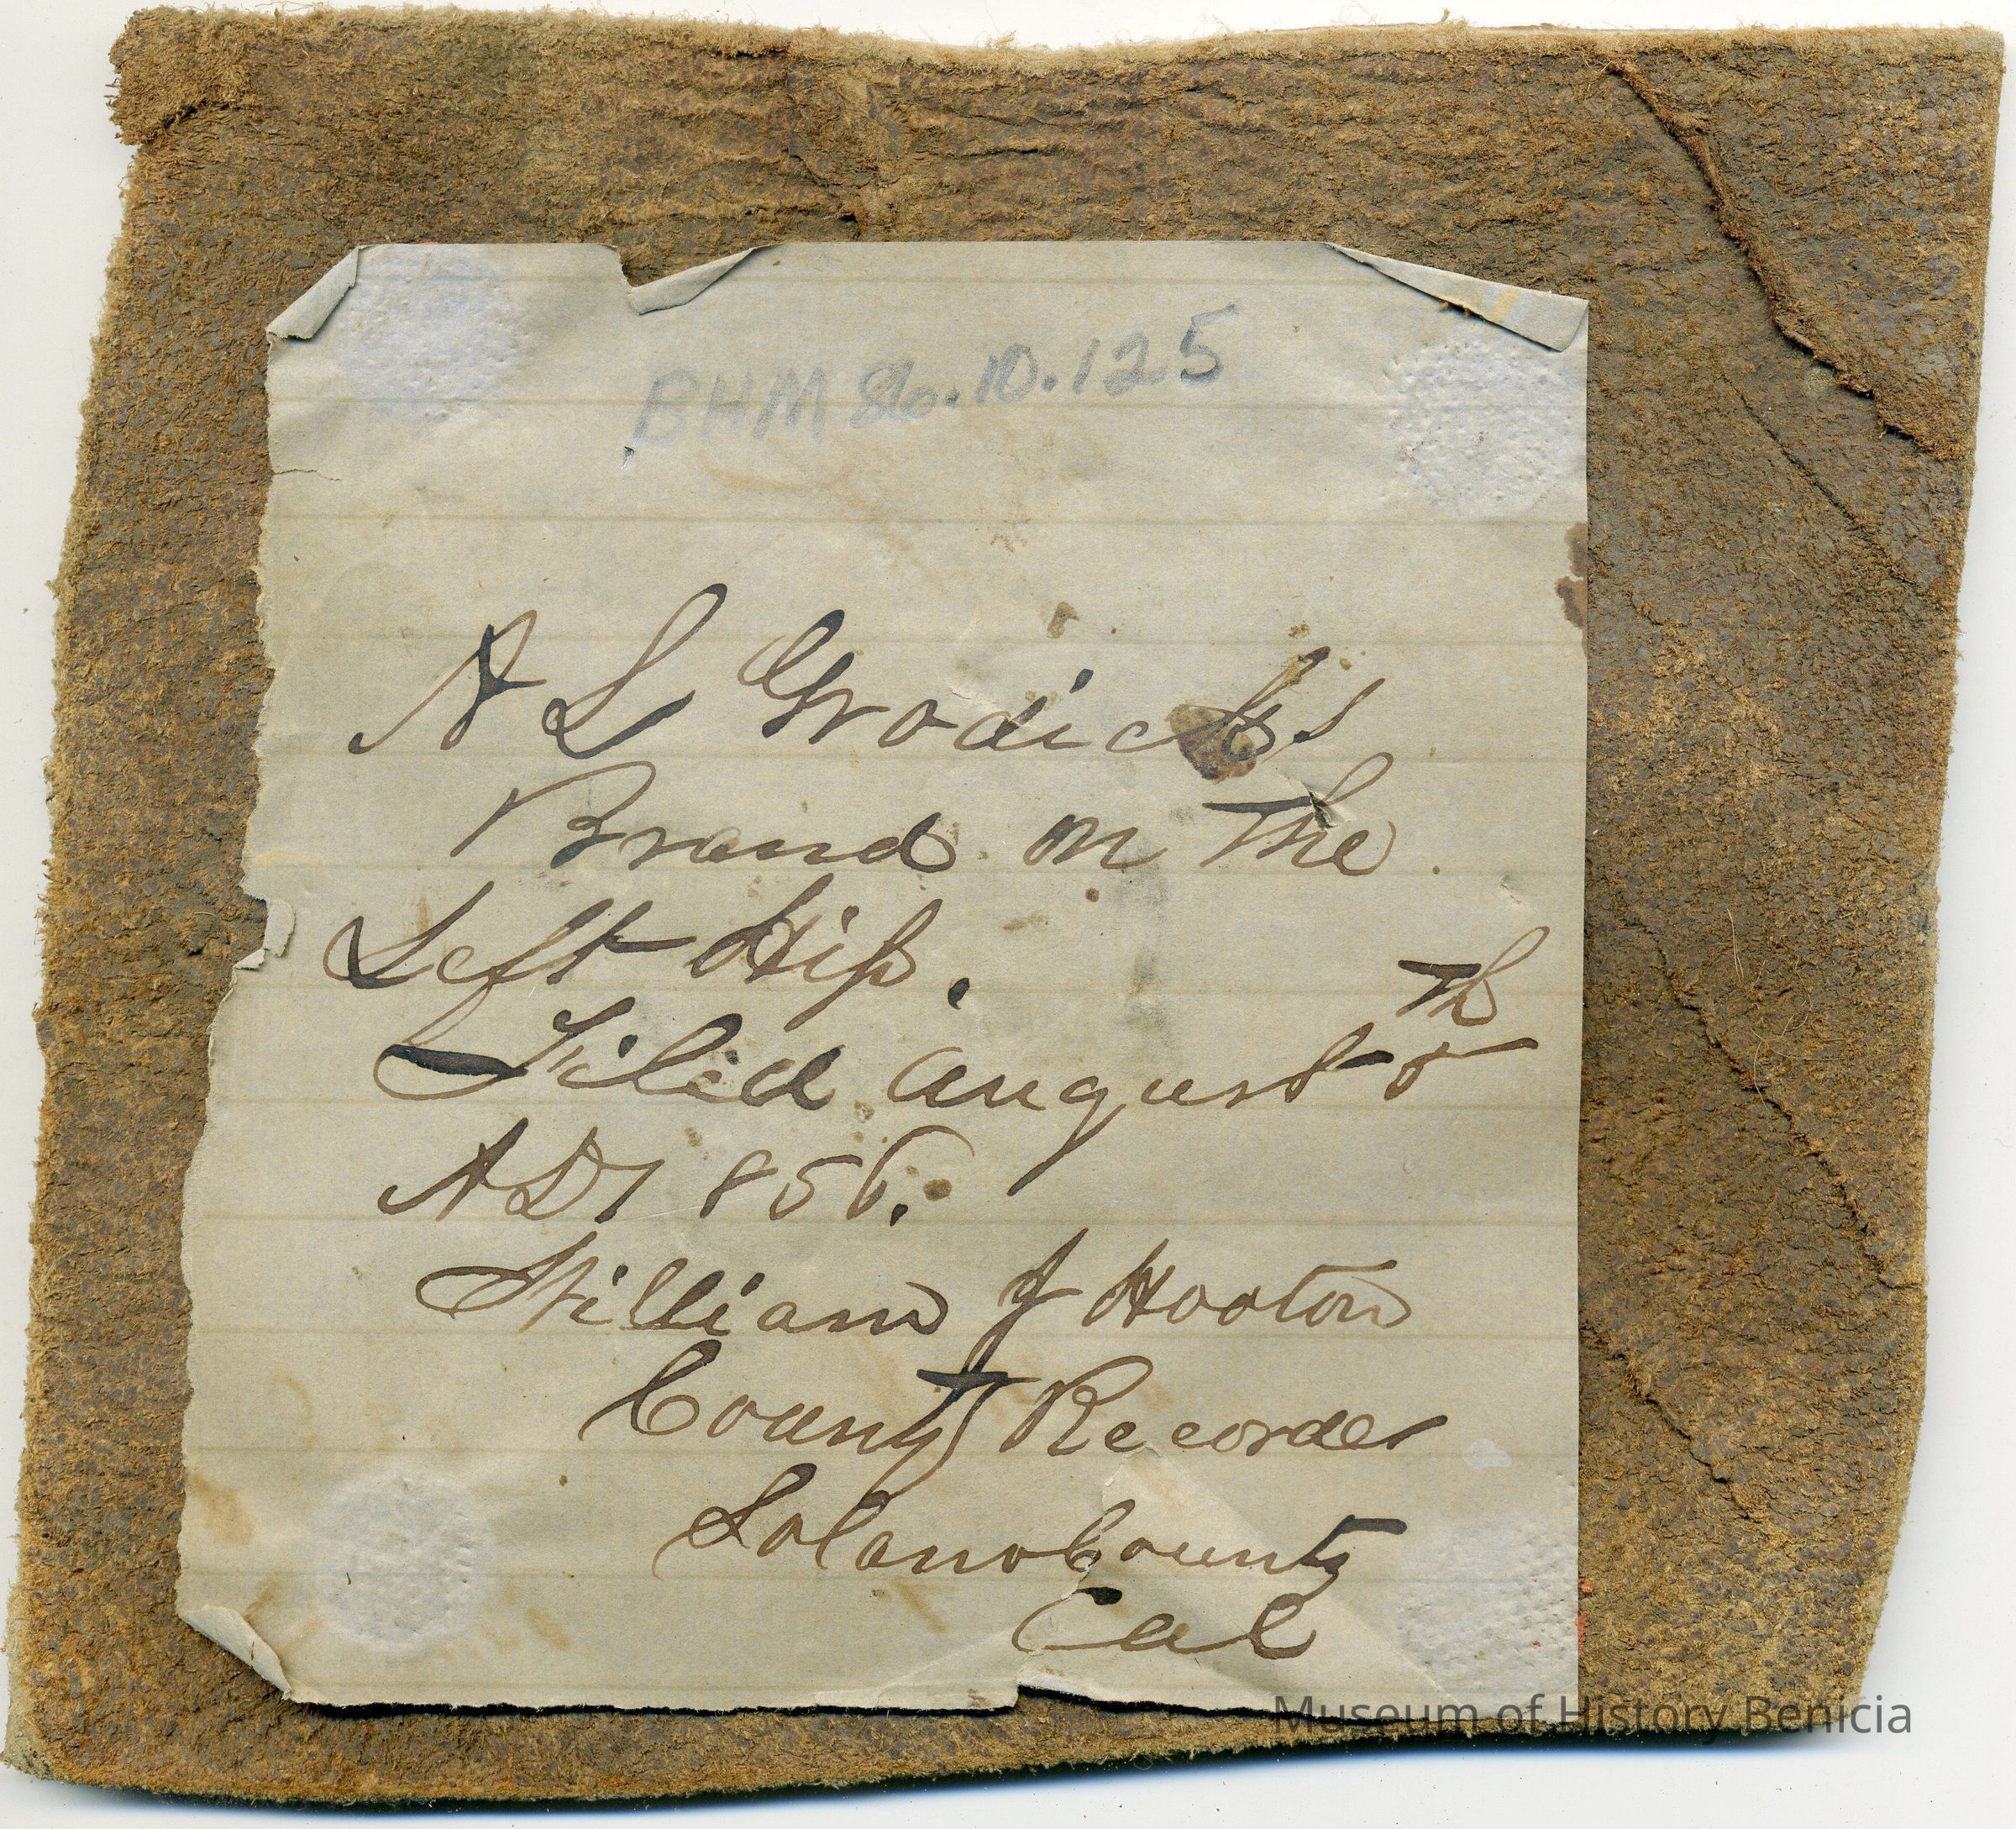 BHM 86.10.125
A L Grodicks
Brand on The
Left Hip.
Th
Filed August 5
A D 1856.
William J Hooton
County Recorder
Solano County
Cal
Museum of History Benicia